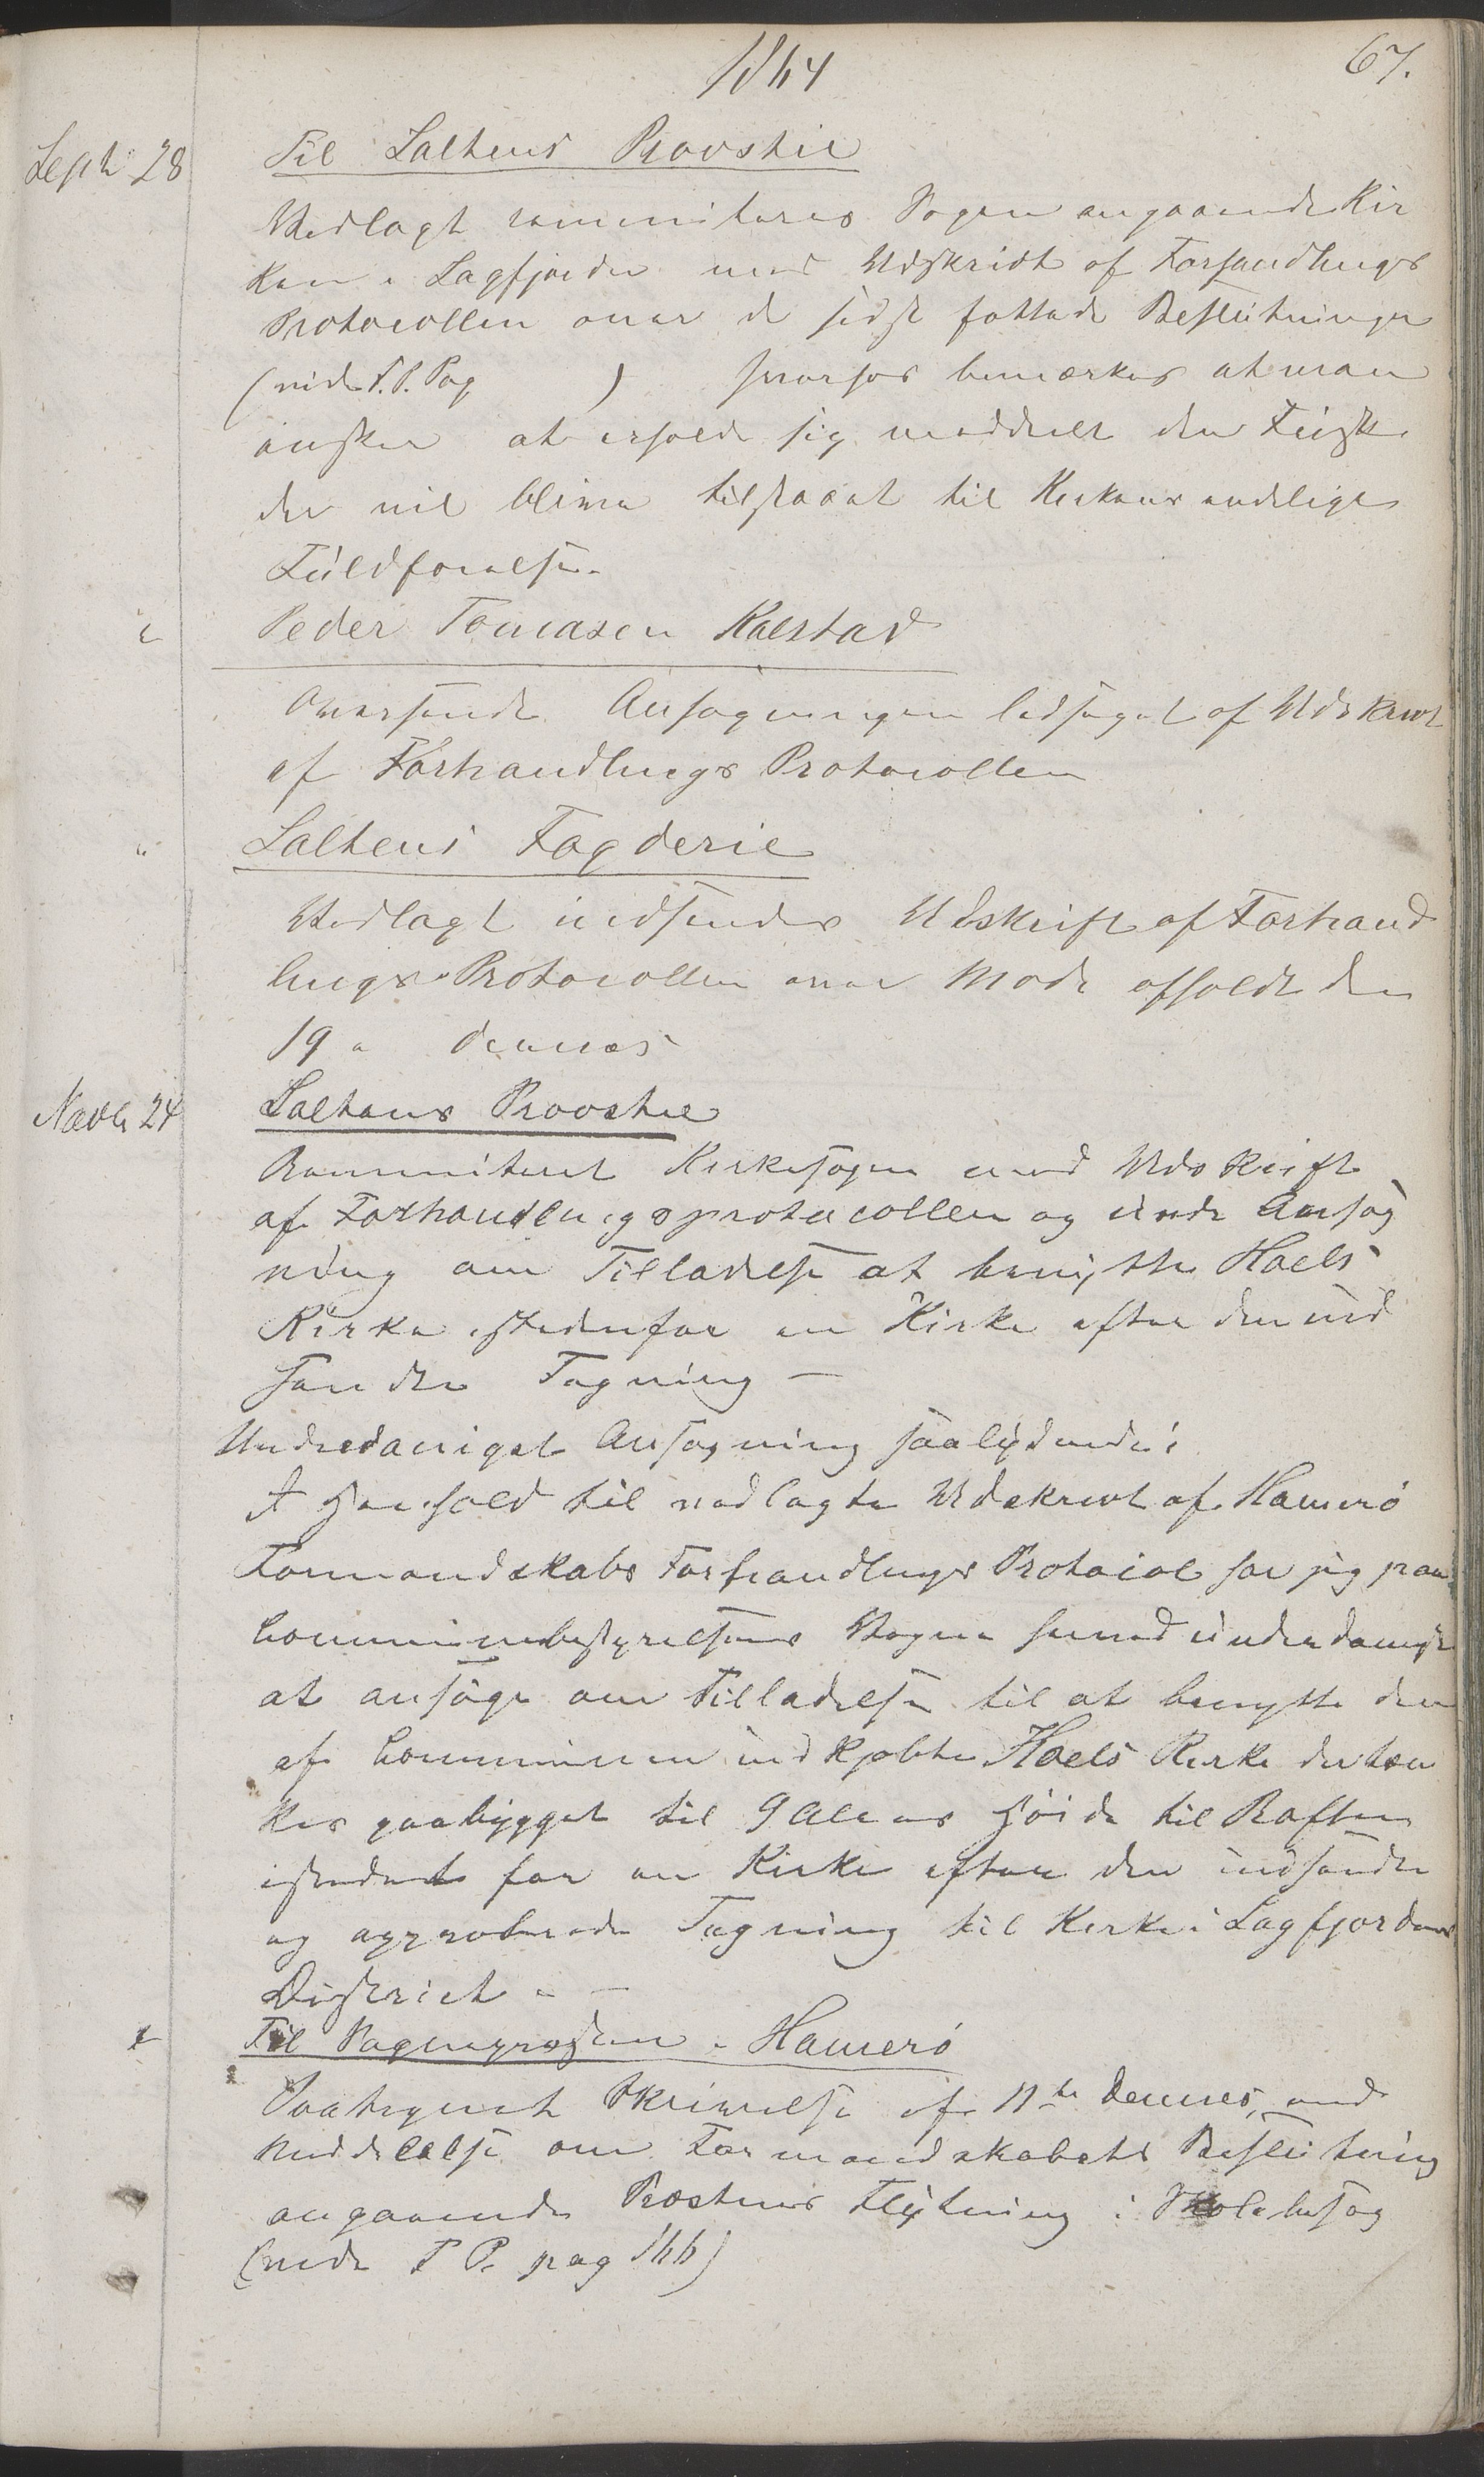 1864
67.
Septr 28
Til Saltens Provstie
Vedlagt remmiteres Sagen angaaende Kir
ken i Sagfjorden med Udskrivt af Forhandlings
Protocollen over de sidst fattede Beslutninger
(vide F. P. Pag ) hvorhos bemærkes at man
ønsker at erholde sig meddeelt den Frist
der vil blive tilstaaet til Kirkens endelige
Fuldførelse.
"
Peder Tomasen Kalstad
Oversende Ansøgningen ledsaget af Udskrivt
af Forhandlings Protocollen
"
Saltens Fogderie
Vedlagt indsendes Udskrift af Forhand
lings Protocollen over Møde afholdt den
19 dennes
Novbr 24
Saltens Provstie
Remmiteret Kirkesagen med Udskrift
af Forhandlingsprotocollen og Ansøg
ning om Tilladelse at benytte Hoels
Kirke istedenfor en Kirke efter den ind
sendte Tegning —
Underdanigst Ansøgning saalydende:
I Henhold til vedlagte Udskrivt af Hamerø
Formandskabs Forhandlings Protocol for jeg paa
Communebestyrelsens Vegne herved underdanigst
at ansøge om Tilladelse til at benytte den
af Communen indkjøbte Hoels Kirke der tæn
kes paabygget til 9 Alens Høide til Raften
istedet for en Kirke efter den indsendte
og approberede Tegning til Kirke i Sagfjordens
District. —
"
Til Sognepræsten i Hamerø
Paategnet Skrivelse af 11te dennes, med
Meddelelse om Formandskabets Beslutning
angaaende Præstens Flytning i Skolebesøg
(vide F P. pag 166)